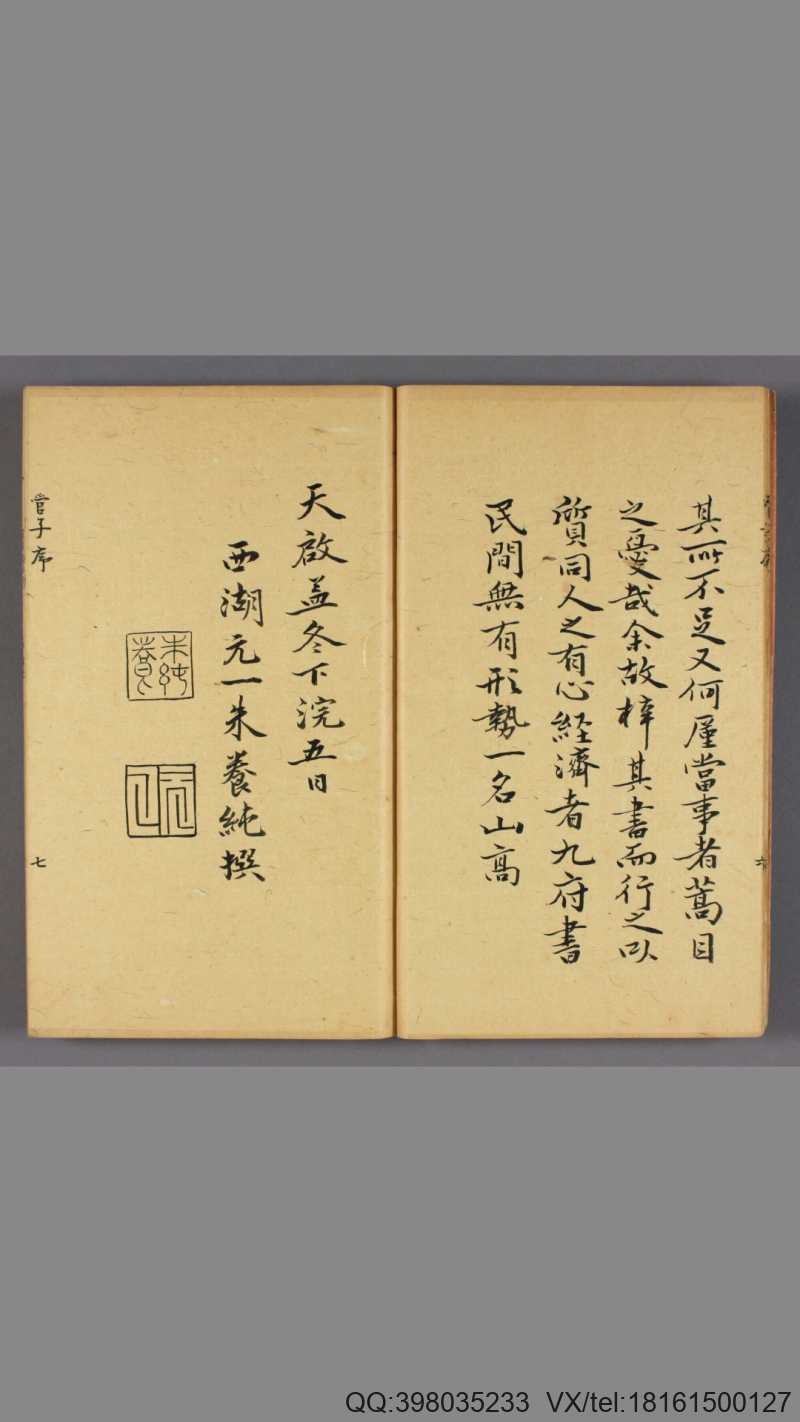 其所不足又何厪當事者蒿目
之憂哉余故梓其書而行之以
質同人之有心經濟者九府書
民間無有形勢一名山高
六
天啟盖冬下浣五日
西湖元一朱養純撰
朱養純
元一
管子序
七
QQ:398035233 VX/tel:18161500127